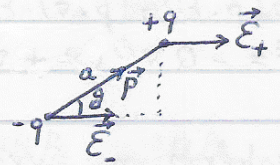 +q
ℰ⃗+
a
p⃗
θ
-q
ℰ⃗-